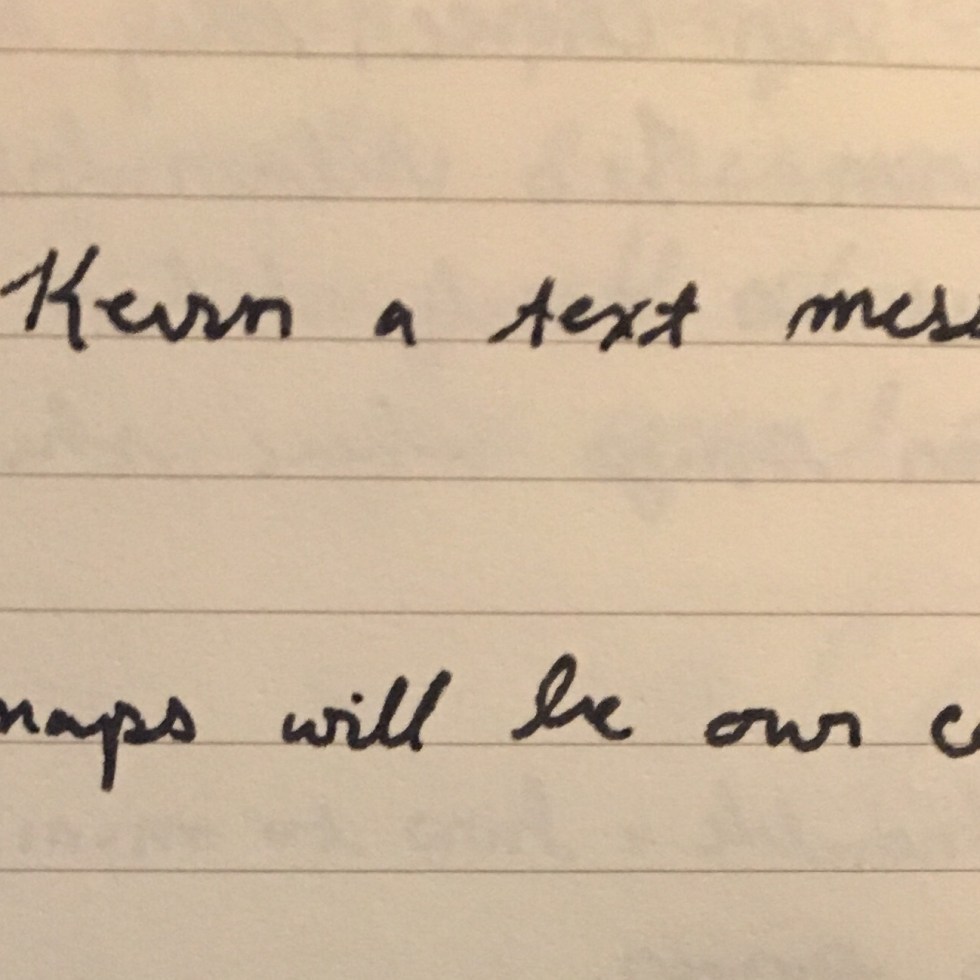 Kevin a text mess
maps will be our c